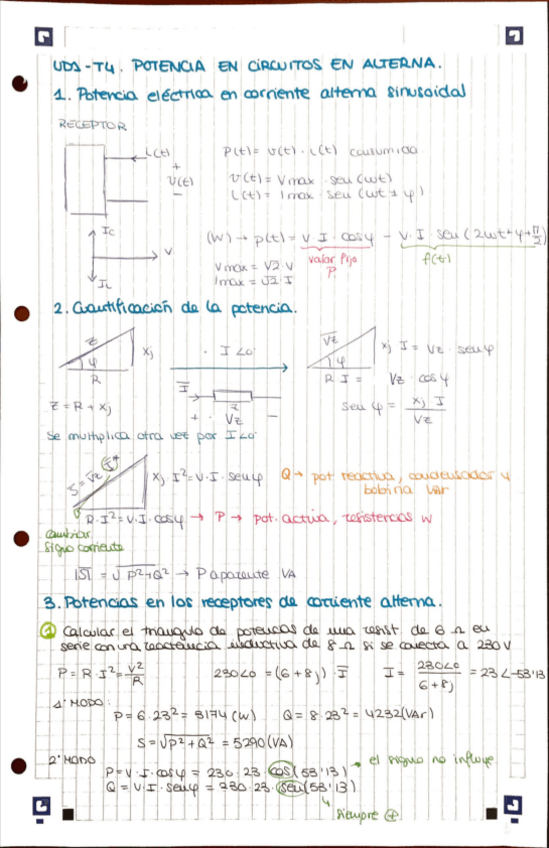 UD1-T4. POTENCIA EN CIRCUITOS EN ALTERNA.
1. Potencia eléctrica en corriente alterna sinusoidal
RECEPTOR
i(t)
+
v(t)
-
P(t) = v(t) · i(t) consumida
v(t) = Vmax · sen (ωt)
i(t) = Imax · sen (ωt ± φ)
Ic
V
IL
(W) → p(t) = V · I · cosφ - V · I · sen (2ωt + φ + π/2)
valor fijo
P.
f(t)
Vmax = √2 · V
Imax = √2 · I
2. Cuantificación de la potencia.
z
Xj
φ
R
z = R + Xj
· I∠0
I
z
+ Vz -
Vz
φ
Xj I = Vz · senφ
R I = Vz · cosφ
sen φ = Xj I / Vz
se multiplica otra vez por I∠0
S = Vz I*
Xj I² = V · I · senφ
Q → pot reactiva, condensador y
bobina VAr
R · I² = V · I · cosφ → P → pot. activa, resistencias W
cambiar
signo corriente
|S| = √P²+Q² → P aparente VA
3. Potencias en los receptores de corriente alterna.
1 Calcular el triangulo de potencias de una resist de 6 Ω en
serie con una reactancia inductiva de 8 Ω si se conecta a 230V
P = R · I² = V²/R
230∠0 = (6 + 8j) · I
I = 230∠0 / 6 + 8j = 23∠-53'13
1º MODO:
P = 6 · 23² = 3174 (W)
Q = 8 · 23² = 4232 (VAr)
S = √P² + Q² = 5290 (VA)
2º MODO
P = V · I · cosφ = 230 · 23 · cos (53'13)
el signo no influye
Q = V · I · senφ = 230 · 23 · sen (53'13)
siempre +